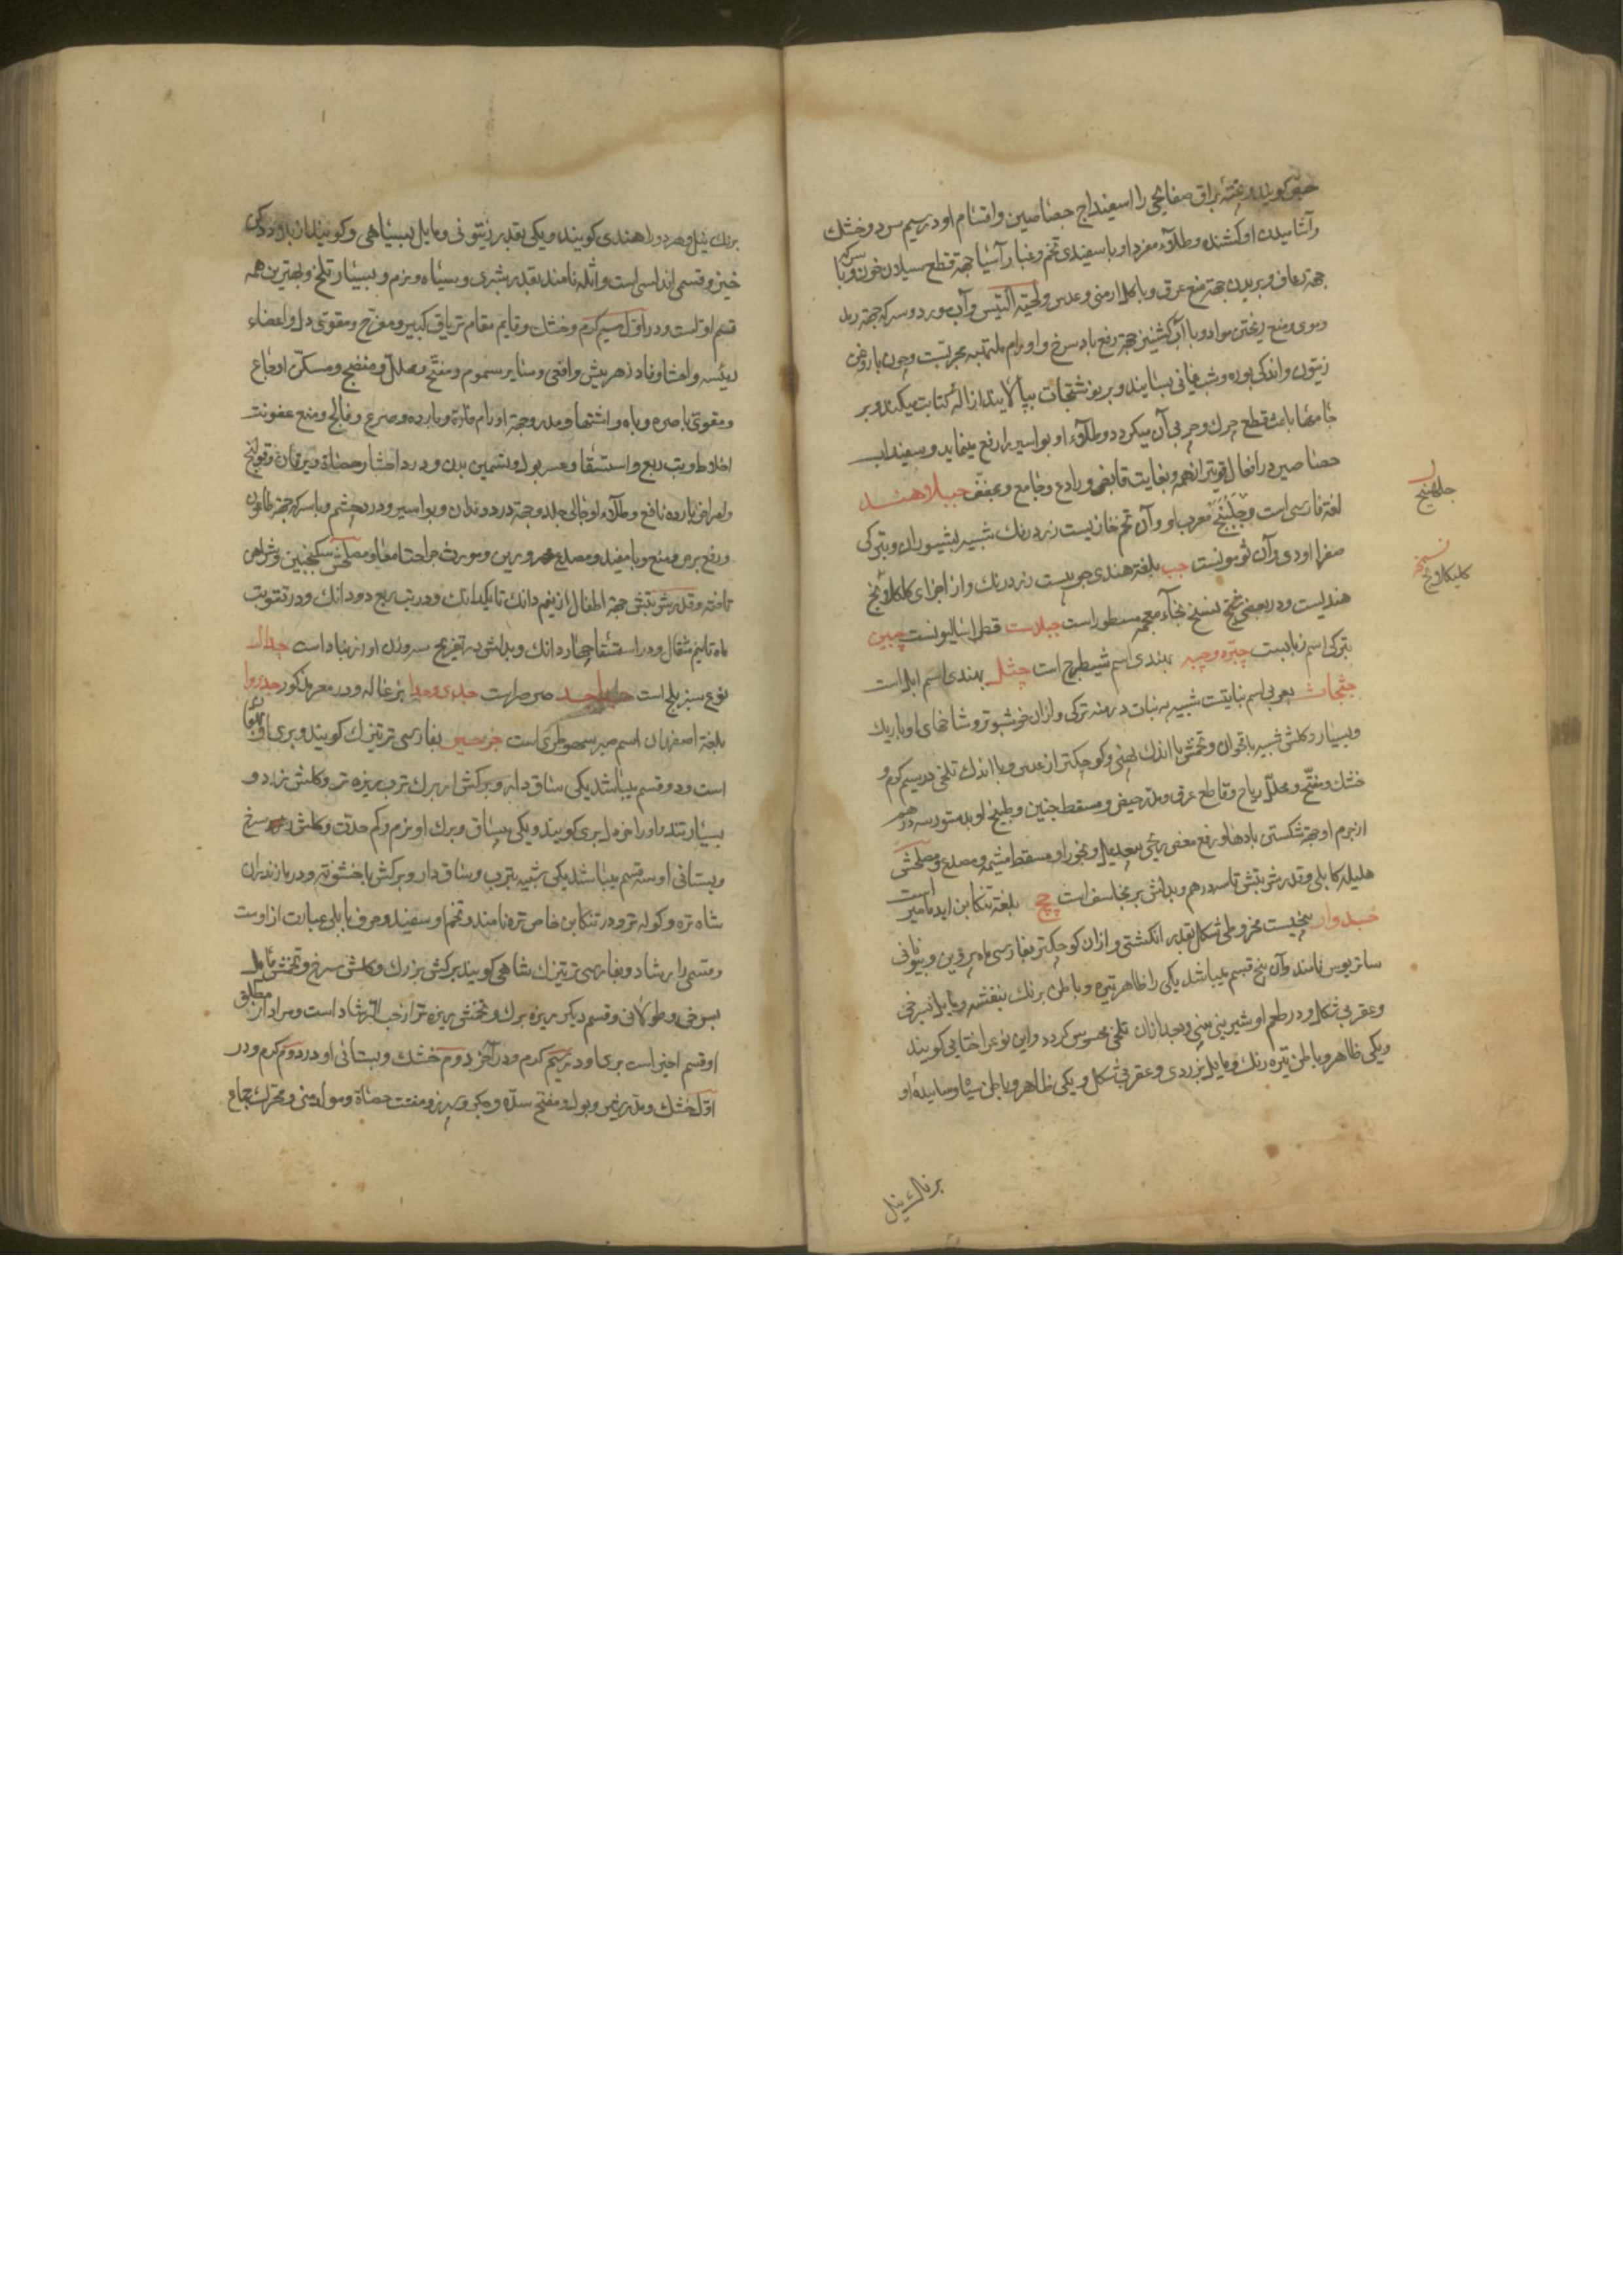 جص گویند و پخته براق صفایحی را اسفیداج جصاصین و اقسام او در سیم سرد و خشک
و آشامیدن او کشنده و طلاء مفرد او با سفیدی تخم و غبار آسیا جهة قطع سیلان خون و با سرکه
جهة رعاف و بریدن جهة منع عرق و با کل ارمنی و عدس و لحیة التیس و آب مورد و سرکه جهة رمد
دموی و منع ریختن مواد و با آب کشنیز جهة رفع باد سرخ و اورام ملتهبه مجربست و چون با روغن
زیتون و اندکی بوره و شب یمانی بسایند و بر نوشتجات بیالایند ازاله کتابت میکند و بر
جامها باعث قطع چرک و چربی آن میکردد و طلاء او بواسیر را رفع مینماید و سفیداب
جصاصین در افعال قویتر از همه و بغایت قابض و رادع و جامع و مجفف جبلاهنک
لغة فارسی است و جبلهنج معرب او و آن تخم خاریست زرد رنک شبیه بشیوران و بترکی
صغرا اودی و آن ثومونست جب بلغة هندی چوبیست زرد رنک و از اجزای کلکلانج
هندیست و در بعضی نسخ بخاء معجمه مسطور است جبلاست قطر اسالیونست جبین
بترکی اسم ذبابست چتره و چیه بهندی اسم شیطرج است چثلا بهندی اسم ابل است
جثجاث بعربی اسم نباتیست شبیه به نبات درمنه ترکی و ازان خوشبوتر و شاخهای او باریک
و بسیار و کلش شبیه باقحوان و تخمش با اندک پهنی و کوچکتر از عدس و با اندک تلخی در سیم کرم و
خشک و مفتح و محلل ریاح و قاطع عرق و مدر حیض و مسقط جنین و طبیخ او بدستور سه درهم
از جرم او جهة شکستن بادها و رفع مغص ریحی بیعدیل و بخور او مسقط مشیمه و مصدع و مصلحش
هلیله کابلی و قدر شربتش تا سه درهم و بدلش برنجاسف است چچ بلغة تنکابن اید مامیر است
جدوار بیخیست مخروطی شکل بقدر انکشتی و ازان کوچکتر بفارسی ماه پروین و بیونانی
ساتریوس نامند و آن پنج قسم میباشد یکی را ظاهر تیره و باطن برنک بنفشه و مایل بسرخی
و عقربی شکل و در طعم او شیرینی بینی و بعد ازان تلخی محسوس کردد و این نوع را ختایی کویند
و یکی ظاهر و باطن تیره رنک و مایل بزردی و عقربی شکل و یکی ظاهر و باطن سیاه و ساییده او
برنک نیل
جبلهنج
نسخه
کلیکلانج
برنک نیل و هر دو را هندی کویند و یکی بقدر زیتونی و مایل بسیاهی و کویند از بلاد دکن
خیزد و قسمی اندلسی است و انثله نامند بقدر بشبری و سیاه و نرم و بسیار تلخ و بهترین همه
قسم اولست و در اول سیم کرم و خشک و قایم مقام تریاق کبیر و مفرح و مقوی دل و اعضاء
رئیسه و احشا و فاد زهر بیش و افعی و سایر سموم و مفتح و محلل و منضج و مسکن اوجاع
و مقوی باصره و باه و اشتها و مدر و جهة اورام حاره و بارده و صرع و فالج و منع عفونت
اخلاط و تب ربع و استسقا و عسر بول و تسمین بدن و درد احشا و حصاة و یرقان و قولنج
و امراض بارده نافع و طلاء او جالی جلد و جهة درد دندان و بواسیر و درد چشم و با سرکه جهة طاعون
و رفع برص و منع وبا مفید و مصدع محرورین و مورث جراحت امعا و مصلحش سکنجبین و ترش
تازه و قدر شربتش جهة اطفال از نیم دانک تا یکدانک و در تب ربع دو دانک و در تقویت
باه تا نیم مثقال و در استسقا چهار دانک و بدلش در تفریح سه وزن او زرنباد است جدال
نوع سبز بلح است جداجد صرصر است جدی و جدا بزغاله و در معز مذکور جدروا
بلغة اصفهان اسم صبر سقوطری است جرجیر بفارسی ترتیزک کویند و بری ایهقان
است و دو قسم میباشد یکی ساق دار و برکش از برک ترب ریزه تر و کلش زرد و
بسیار تند و او را خردل بری کویند و یکی بیساق و برک او نرم و کم حدت و کلش سرخ
و بستانی او سه قسم میباشد یکی شبیه بترب و ساق دار و برکش با خشونة و در مازندران
شاه تره و کوله تر و در تنکابن خاص تره نامند و تخم او سفید و حرف بابلی عبارت از اوست
و قسمی را رشاد و بفارسی ترتیزک شاهی کویند برکش بزرک و کلش سرخ و تخمش مایل
بسرخی و طولانی و قسم دیکر ریزه برک و تخمش ریزه تر از حب الرشاد است و مراد از مطلق
او قسم اخیر است بری او در سیم کرم و در آخر دوم خشک و بستانی او در دوم کرم و در
اول خشک و مدر حیض و بول و مفتح سده و جکر و سپرز و مفتت حصاة و مولد منی و محرک جماع